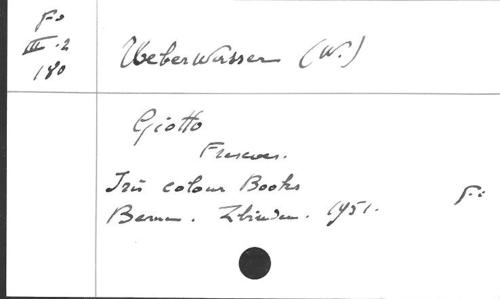 Fo
III.2
180
Ueberwasser (W.)
Giotto
Frescoes.
Iris colour Books
Bern. Zbinden. 1951.